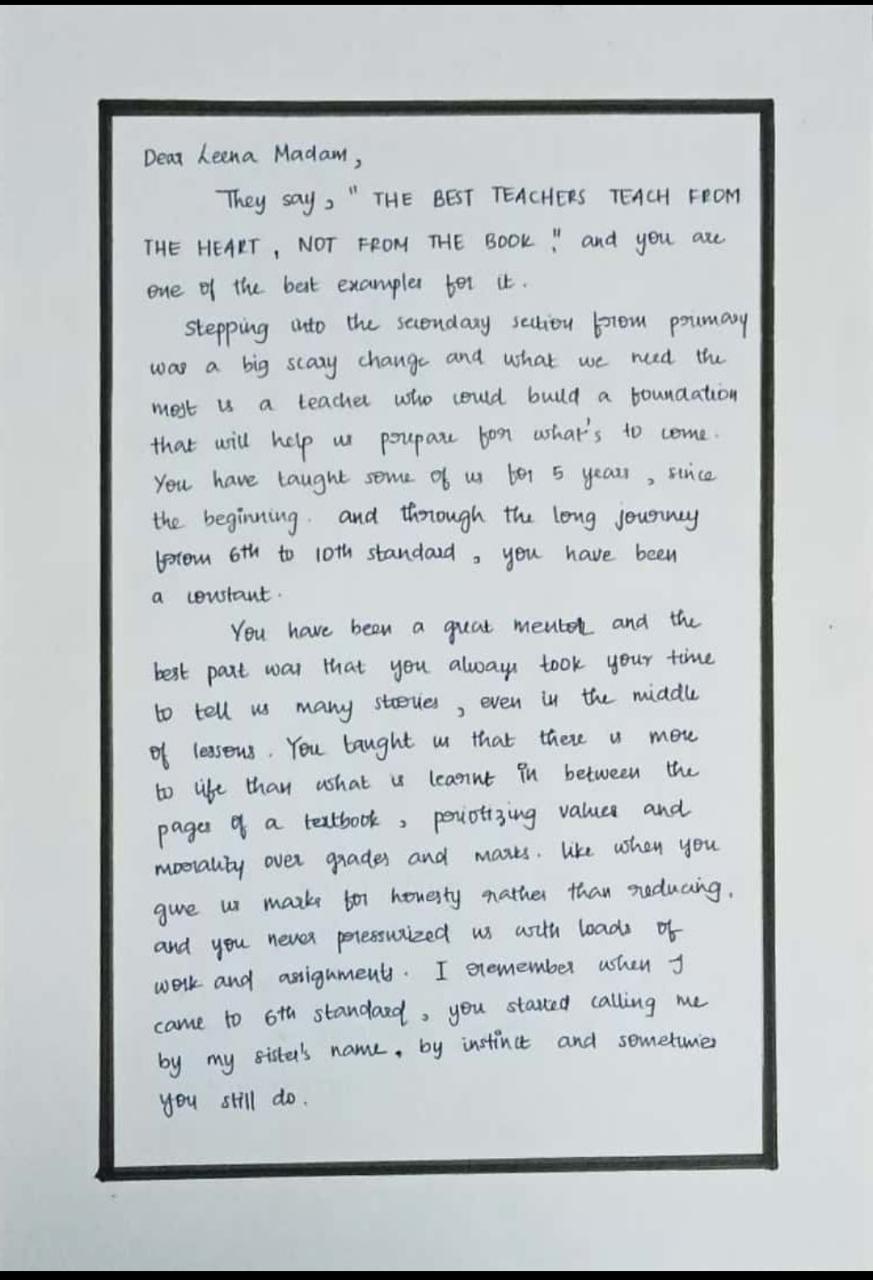 Dear Leena Madam,
They say, " THE BEST TEACHERS TEACH FROM
THE HEART, NOT FROM THE BOOK." and you are
one of the best examples for it.
Stepping into the secondary section from primary
was a big scary change and what we need the
most is a teacher who could build a foundation
that will help us prepare for what's to come.
You have taught some of us for 5 years, since
the beginning. and through the long journey
from 6th to 10th standard, you have been
a constant.
You have been a great mentor and the
best part was that you always took your time
to tell us many stories, even in the middle
of lessons. You taught us that there is more
to life than what is learnt in between the
pages of a textbook, periotizing values and
morality over grades and marks. like when you
give us marks for honesty rather than reducing.
and you never pressurized us with loads of
work and assignments. I remember when I
came to 6th standard, you started calling me
by my sister's name. by instinct and sometimes
you still do.